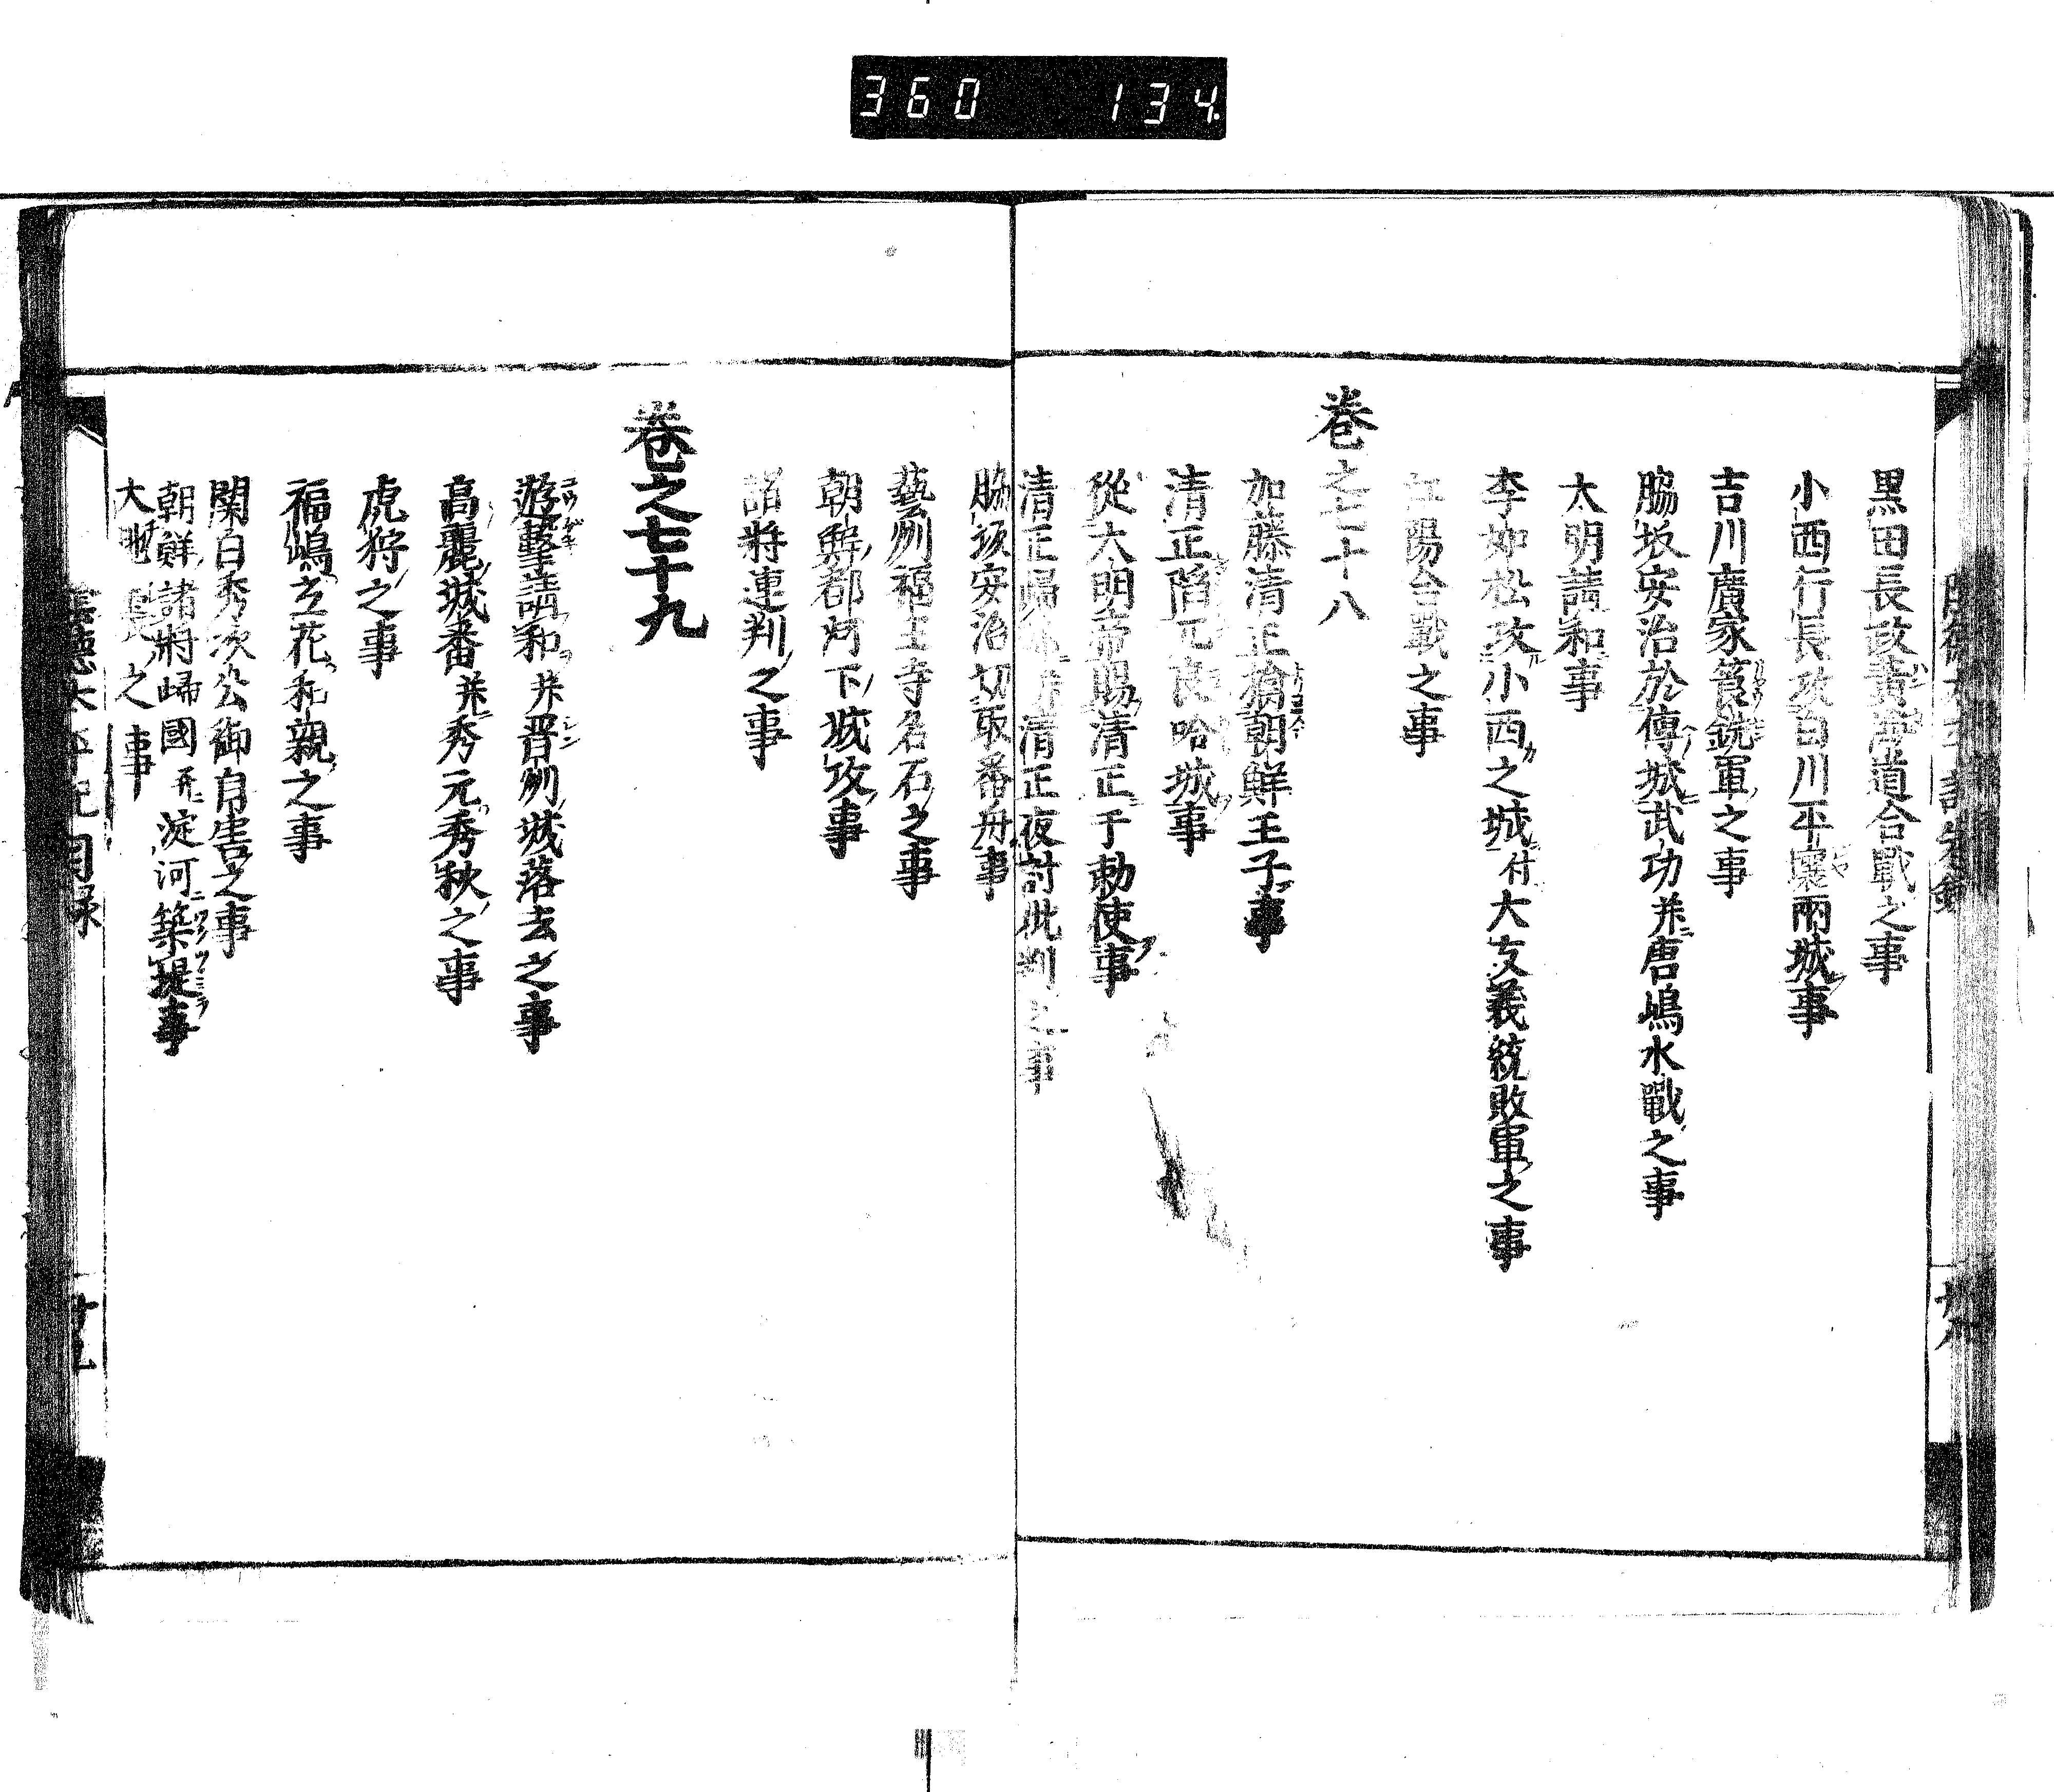 360 134
黒田長政黄海道合戰之事
小西行長攻白川平壤兩城事
吉川廣家筤銃軍之事
脇坂安治於傳城武功并唐嶋水戰之事
太明請和事
李如松攻小西之城付大友義統敗軍之事
江陽合戰之事
巻之七十八
加藤清正擒朝鮮王子事
清正陥兀良哈城事
從大明帝賜清正于勅使事
清正歸 清正夜討批判之事
脇坂安治切取番舟事
藝州福王寺名石之事
朝鮮都河下城攻事
諸將連判之事
巻之七十九
遊撃請和并晋州城落去之事
高麗城番并秀元秀秋之事
虎狩之事
福嶋立花和親之事
関白秀次公御自害之事
朝鮮諸將歸國并淀河築堤事
大地震之事
目録